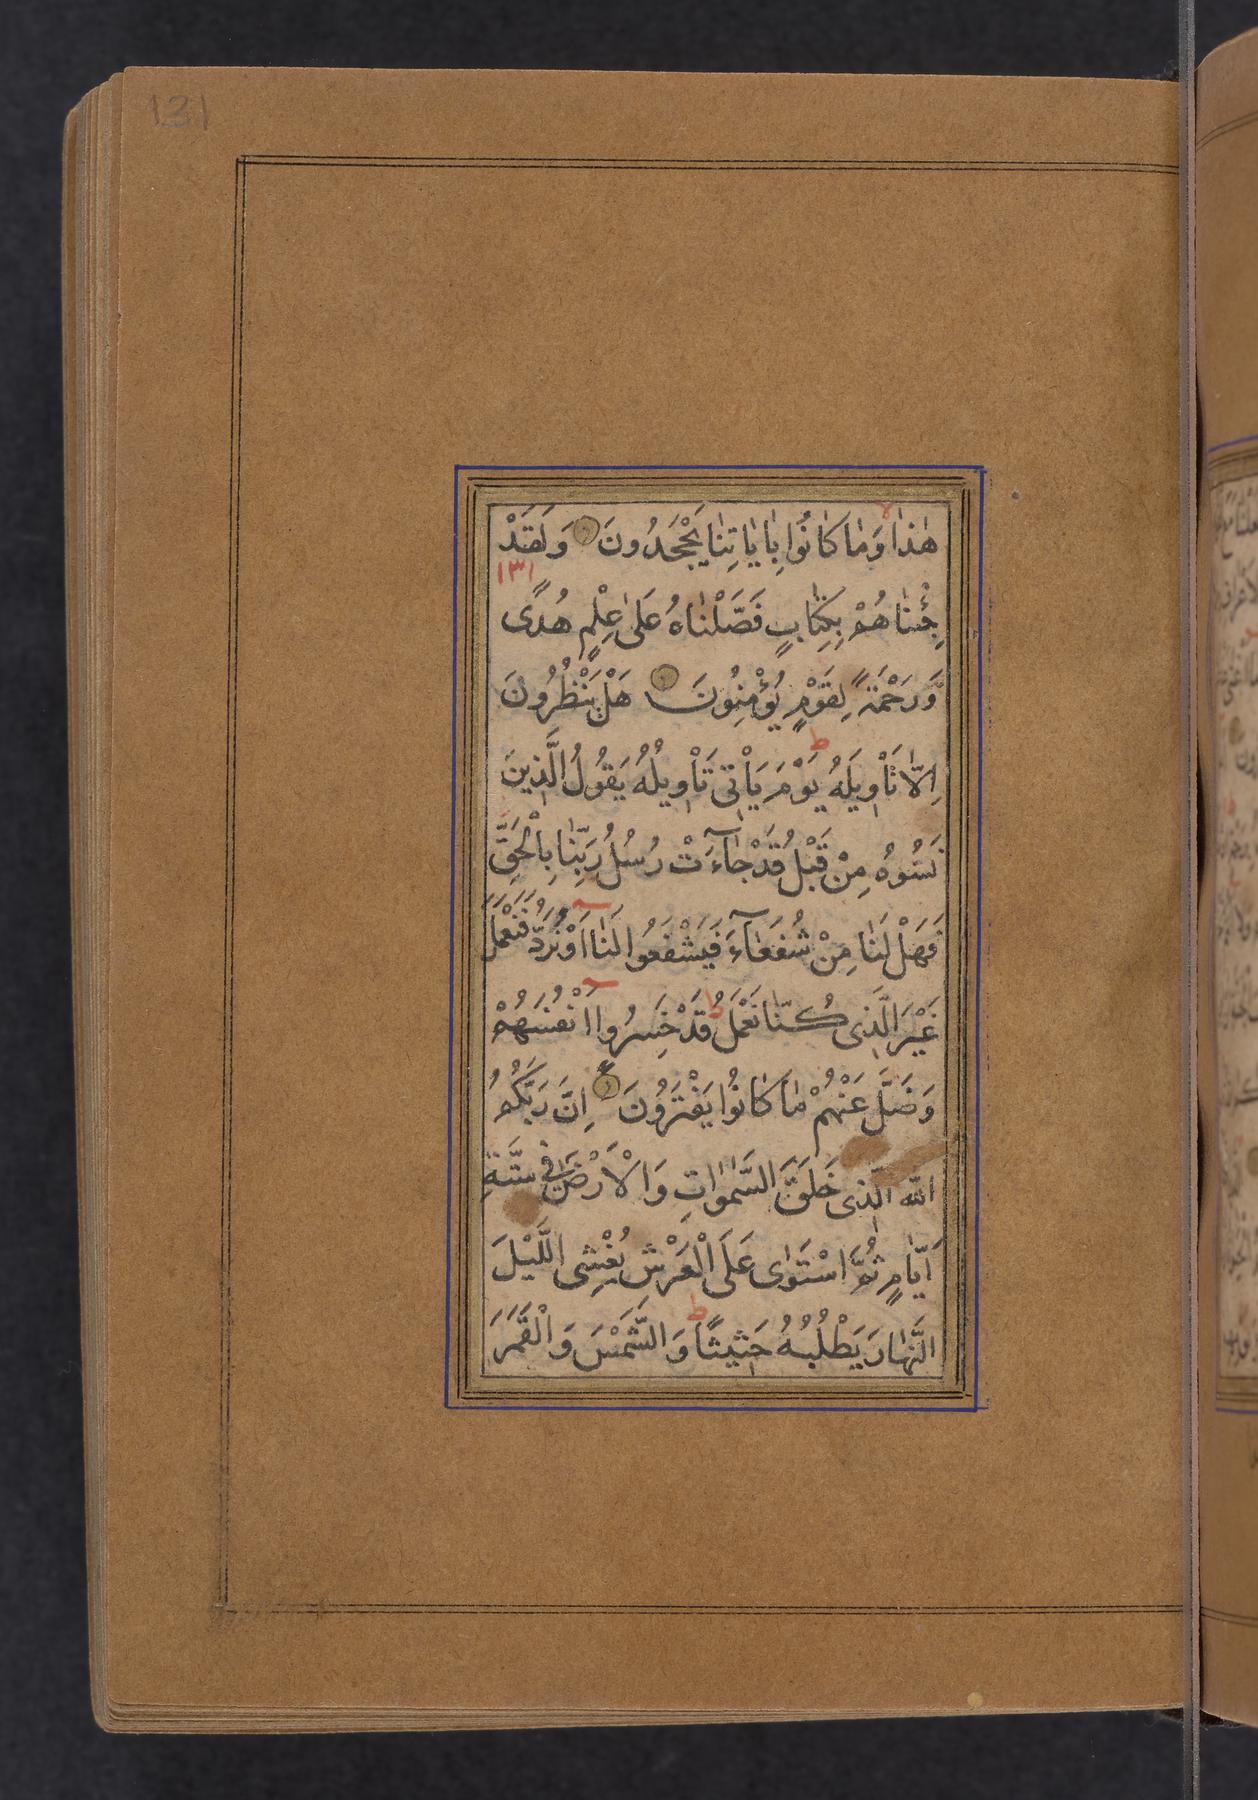 131
هٰذٰا وَمٰا كٰانُوا بِاٰيٰاتِنٰا يَجْحَدُونَ وَلَقَدْ
١٣١
جِئْنٰاهُمْ بِكِتٰابٍ فَصَّلْنٰاهُ عَلىٰ عِلْمٍ هُدًى
وَّرَحْمَةً لِقَوْمٍ يُؤْمِنُونَ هَلْ يَنْظُرُونَ
اِلّٰا تَاْوِيلَهُ ط يَوْمَ يَاْتِى تَاْوِيلُهُ يَقُولُ الَّذِينَ
نَسُوهُ مِنْ قَبْلُ قَدْ جٰآءَتْ رُسُلُ رَبِّنٰا بِالْحَقِّ
فَهَلْ لَنٰا مِنْ شُفَعٰآءَ فَيَشْفَعُوا لَنٰا اَوْ نُرَدُّ فَنَعْمَلَ
غَيْرَ الَّذِى كُنّٰا نَعْمَلُ ط قَدْ خَسِرُوا اَنْفُسَهُمْ
وَضَلَّ عَنْهُمْ مٰا كٰانُوا يَفْتَرُونَ اِنَّ رَبَّكُمُ
اللّٰه الَّذِى خَلَقَ السَّمٰوٰاتِ وَالْاَرْضَ فِى سِتَّةِ
اَيّٰامٍ ثُمَّ اسْتَوٰى عَلَى الْعَرْشِ يُغْشِى اللَّيْلَ
النَّهٰارَ يَطْلُبُهُ حَثِيثًا ط وَالشَّمْسَ وَالْقَمَرَ